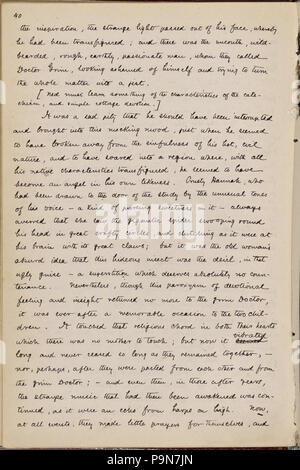 40
the inspiration, the strange light passed out of his face, whereby
he had been transfigured; and there was the uncouth, wild-
bearded, rough, earthly, passionate man, whom they called
Doctor Grim, looking ashamed of himself and trying to turn
the whole matter into a jest.
[Ned must learn something of the characteristics of the cate-
chism, and simple cottage devotion.]
It was a sad pity that he should have been interrupted
and brought into this mocking mood, just when he seemed
to have broken away from the sinfulness of his hot, evil
nature, and to have soared into a region where, with all
his native characteristics transfigured, he seemed to have
become an angel in his own likeness. Crusty Hannah, who
had been drawn to the door of the study by the unusual tones
of his voice – a kind of piercing sweetness in it – always
averred that she saw the gigantic spider swooping round
his head in great crafty circles, and clutching, as it were at
his brain with its great claws; but it was the old woman's
absurd idea that this hideous insect was the devil, in that
ugly guise – a superstition which deserves absolutely no coun-
tenance. Nevertheless, though this paroxysm of devotional
feeling and insight returned no more to the grim Doctor,
it was ever after a memorable occasion to the two chil-
dren. It touched that religious chord, in both their hearts
which there was no mother to touch; but now it vibrated
long and never ceased so long as they remained together, –
nor, perhaps, after they were parted from each other and from
the grim Doctor; – and even then, in those after years,
the strange music that had then been awakened was con-
tinued, as it were an echo from harps on high. Now,
at all events, they made little prayers for themselves, and
alamy
alamy stock photo
P9N7JN
www.alamy.com